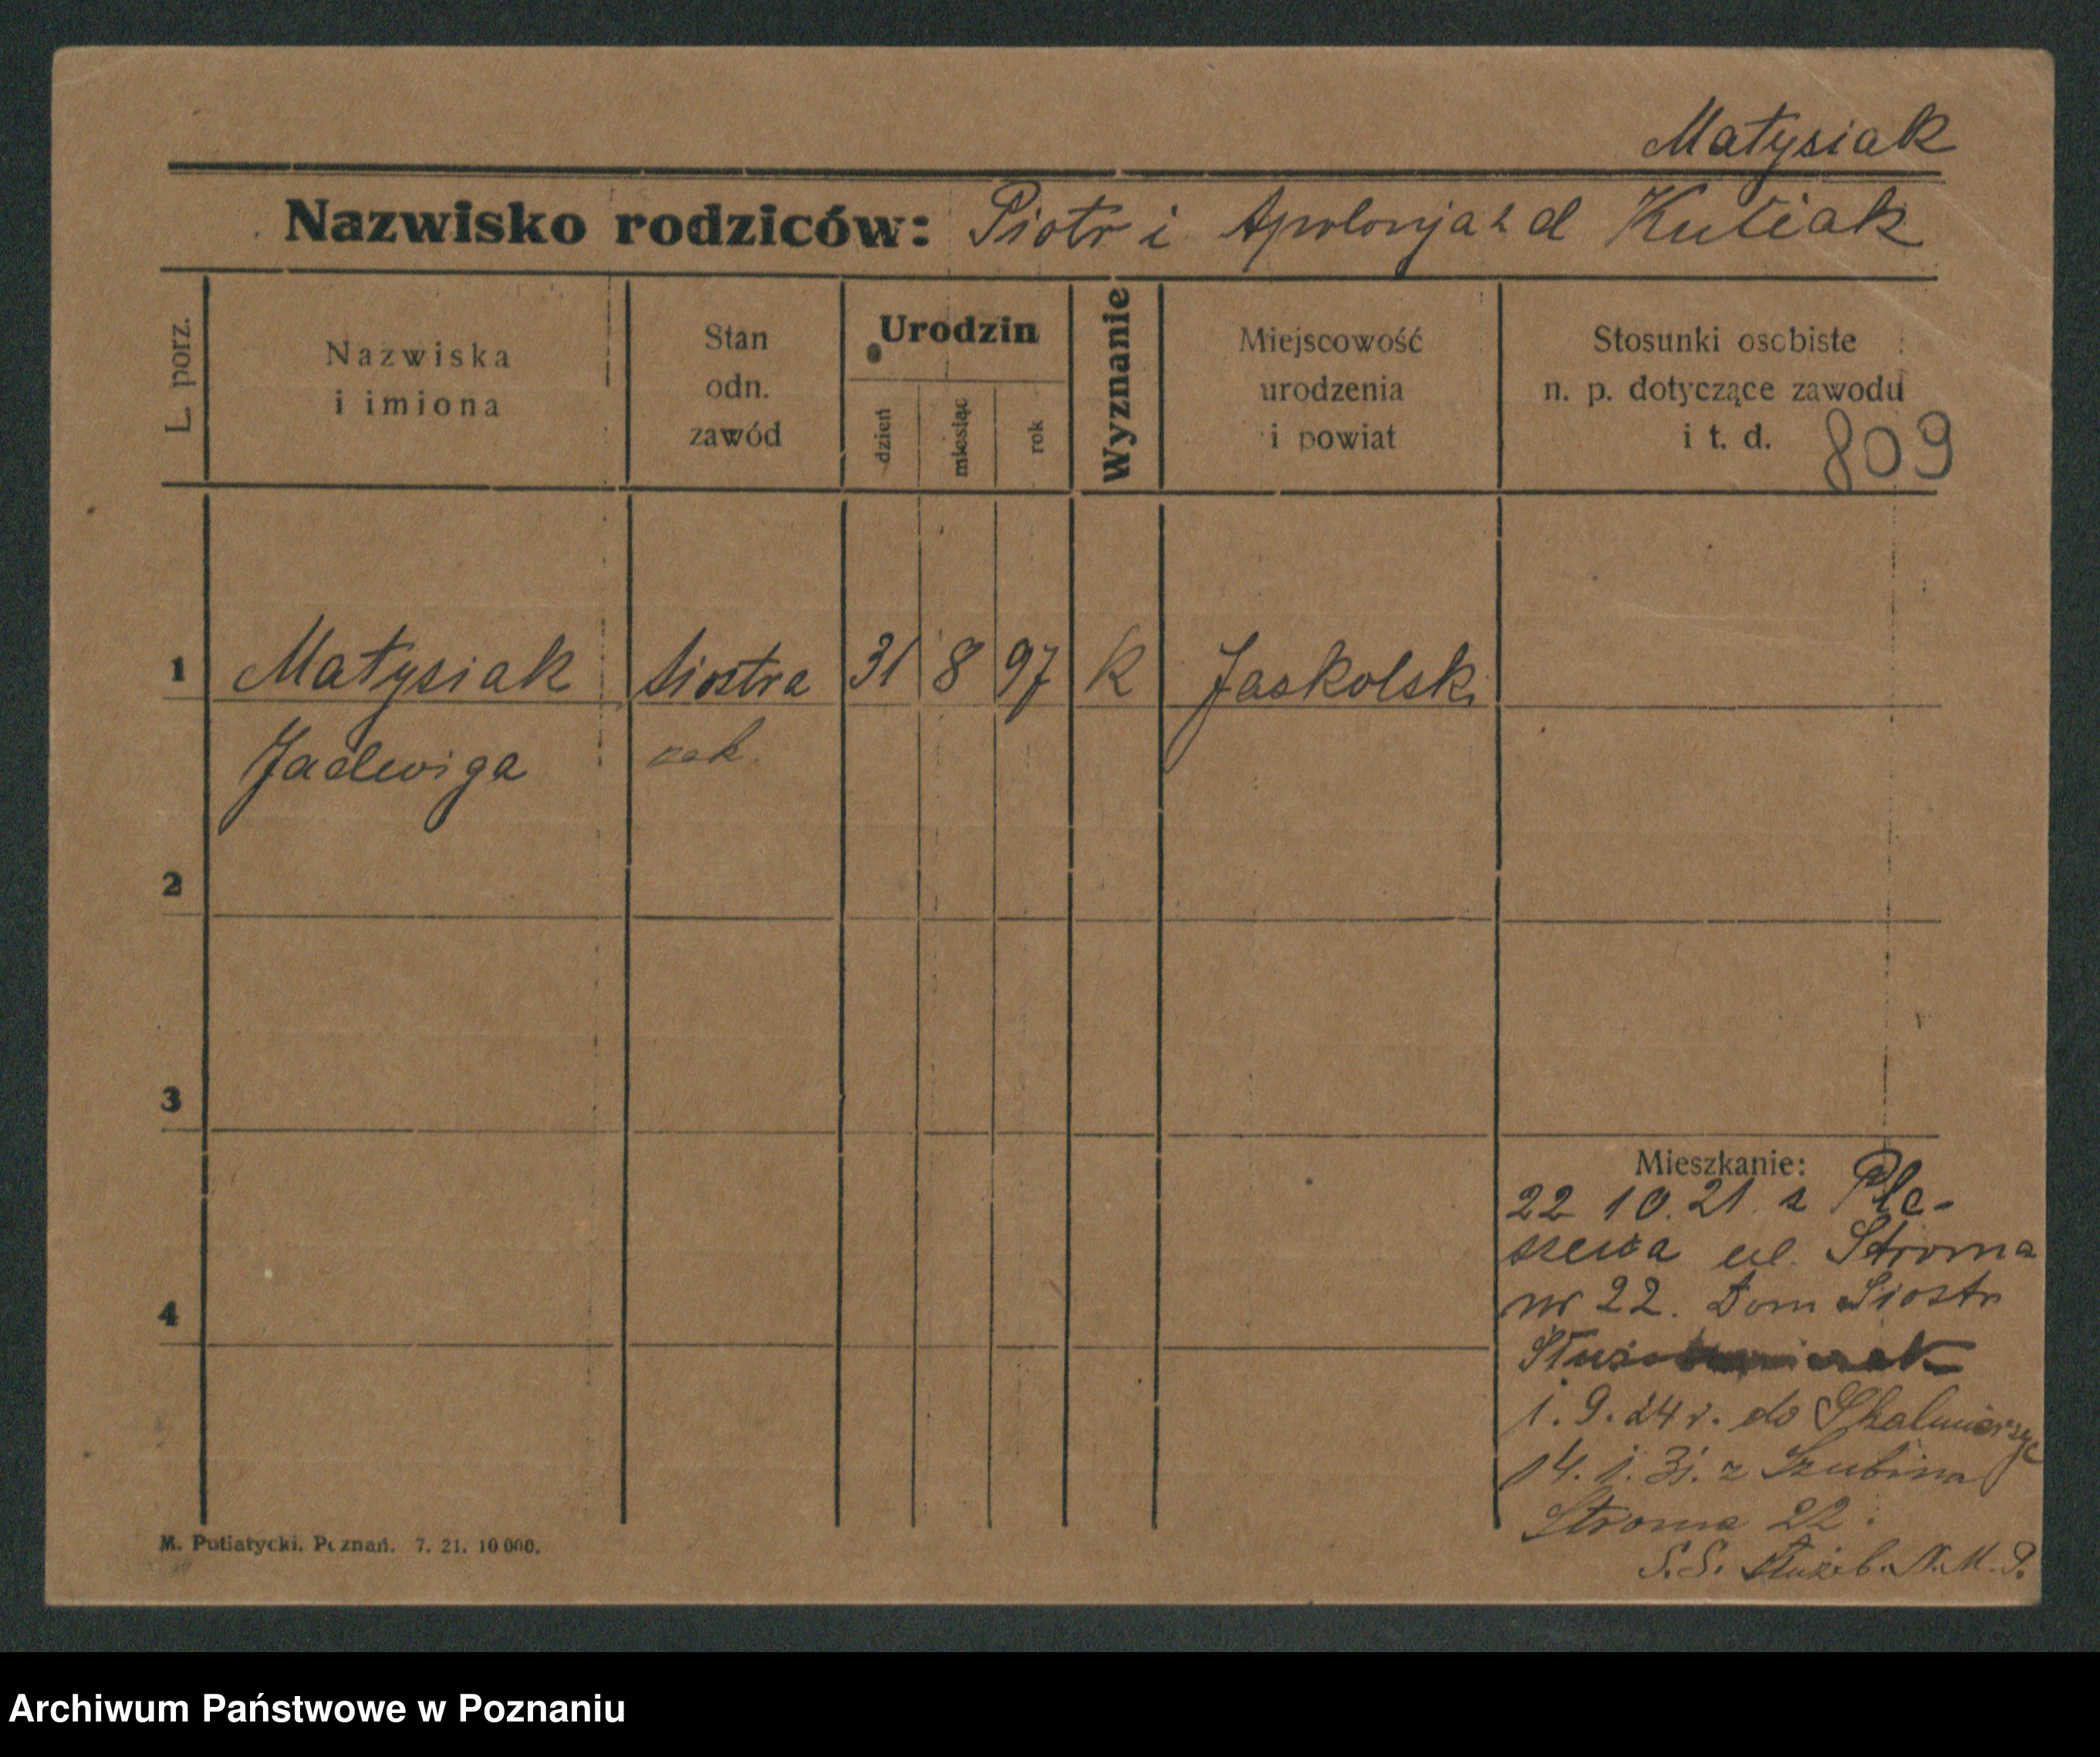 Matysiak
Nazwisko rodziców: Piotr i Apolonja z d Kubiak
L. porz.
Nazwiska
i imiona
Stan
odn.
zawód
Urodzin
dzień
miesiąc
rok
Wyznanie
Miejscowość
urodzenia
i powiat
Stosunki osobiste
n. p. dotyczące zawodu
i t. d.
809
1 Matysiak siostra 31 8 97 k Jaskolski
Jadwiga zak.
2
3
4
Mieszkanie:
22 10. 21. z Ple-
szewa ul. Stroma
nr 22. Dom Siostr
1. 9. 24 r. do Skalmierzyc
14. 1. 31. z Szubina
Stroma 22.
S.S. Służeb. N.M.P.
M. Putiatycki. Poznań. 7. 21. 10 000.
Archiwum Państwowe w Poznaniu